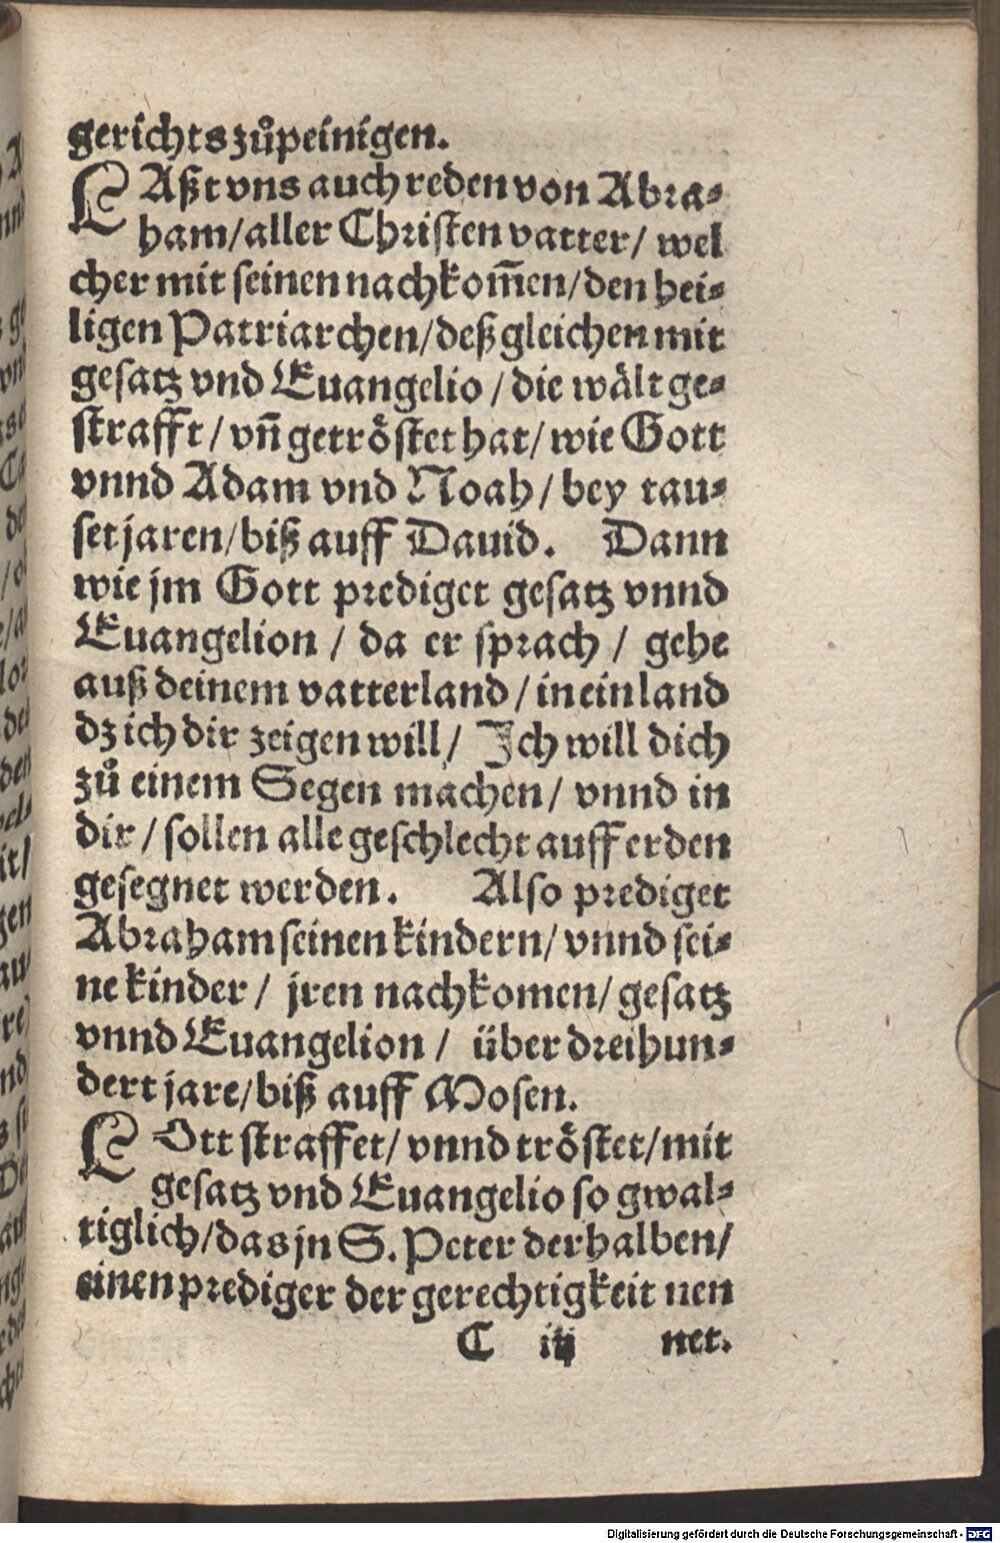 gerichts zůpeinigen.
LAßt vns auch reden von Abra⸗
ham/aller Christen vatter/ wel
cher mit seinen nachkom̄en/den hei⸗
ligen Patriarchen/deßgleichen mit
gesatz vnd Euangelio / die wält ge⸗
strafft/ vn̄ getröstet hat/ wie Gott
vnnd Adam vnd Noah/ bey tau⸗
set jaren/biß auff Dauid. Dann
wie jm Gott prediget gesatz vnnd
Euangelion / da er sprach / gehe
auß deinem vatterland / in ein land
dz ich dir zeigen will/ Ich will dich
zů einem Segen machen/ vnnd in
dir / sollen alle geschlecht auff erden
gesegnet werden. Also prediget
Abraham seinen kindern/ vnnd sei⸗
ne kinder / jren nachkomen/ gesatz
vnnd Euangelion / über dreihun⸗
dert jare/biß auff Mosen.
LOtt straffet/ vnnd tröstet/mit
gesatz vnd Euangelio so gwal⸗
tiglich/das jn S. Peter derhalben/
einen prediger der gerechtigkeit nen
C iij net.
Digitalisierung gefördert durch die Deutsche Forschungsgemeinschaft - DFG